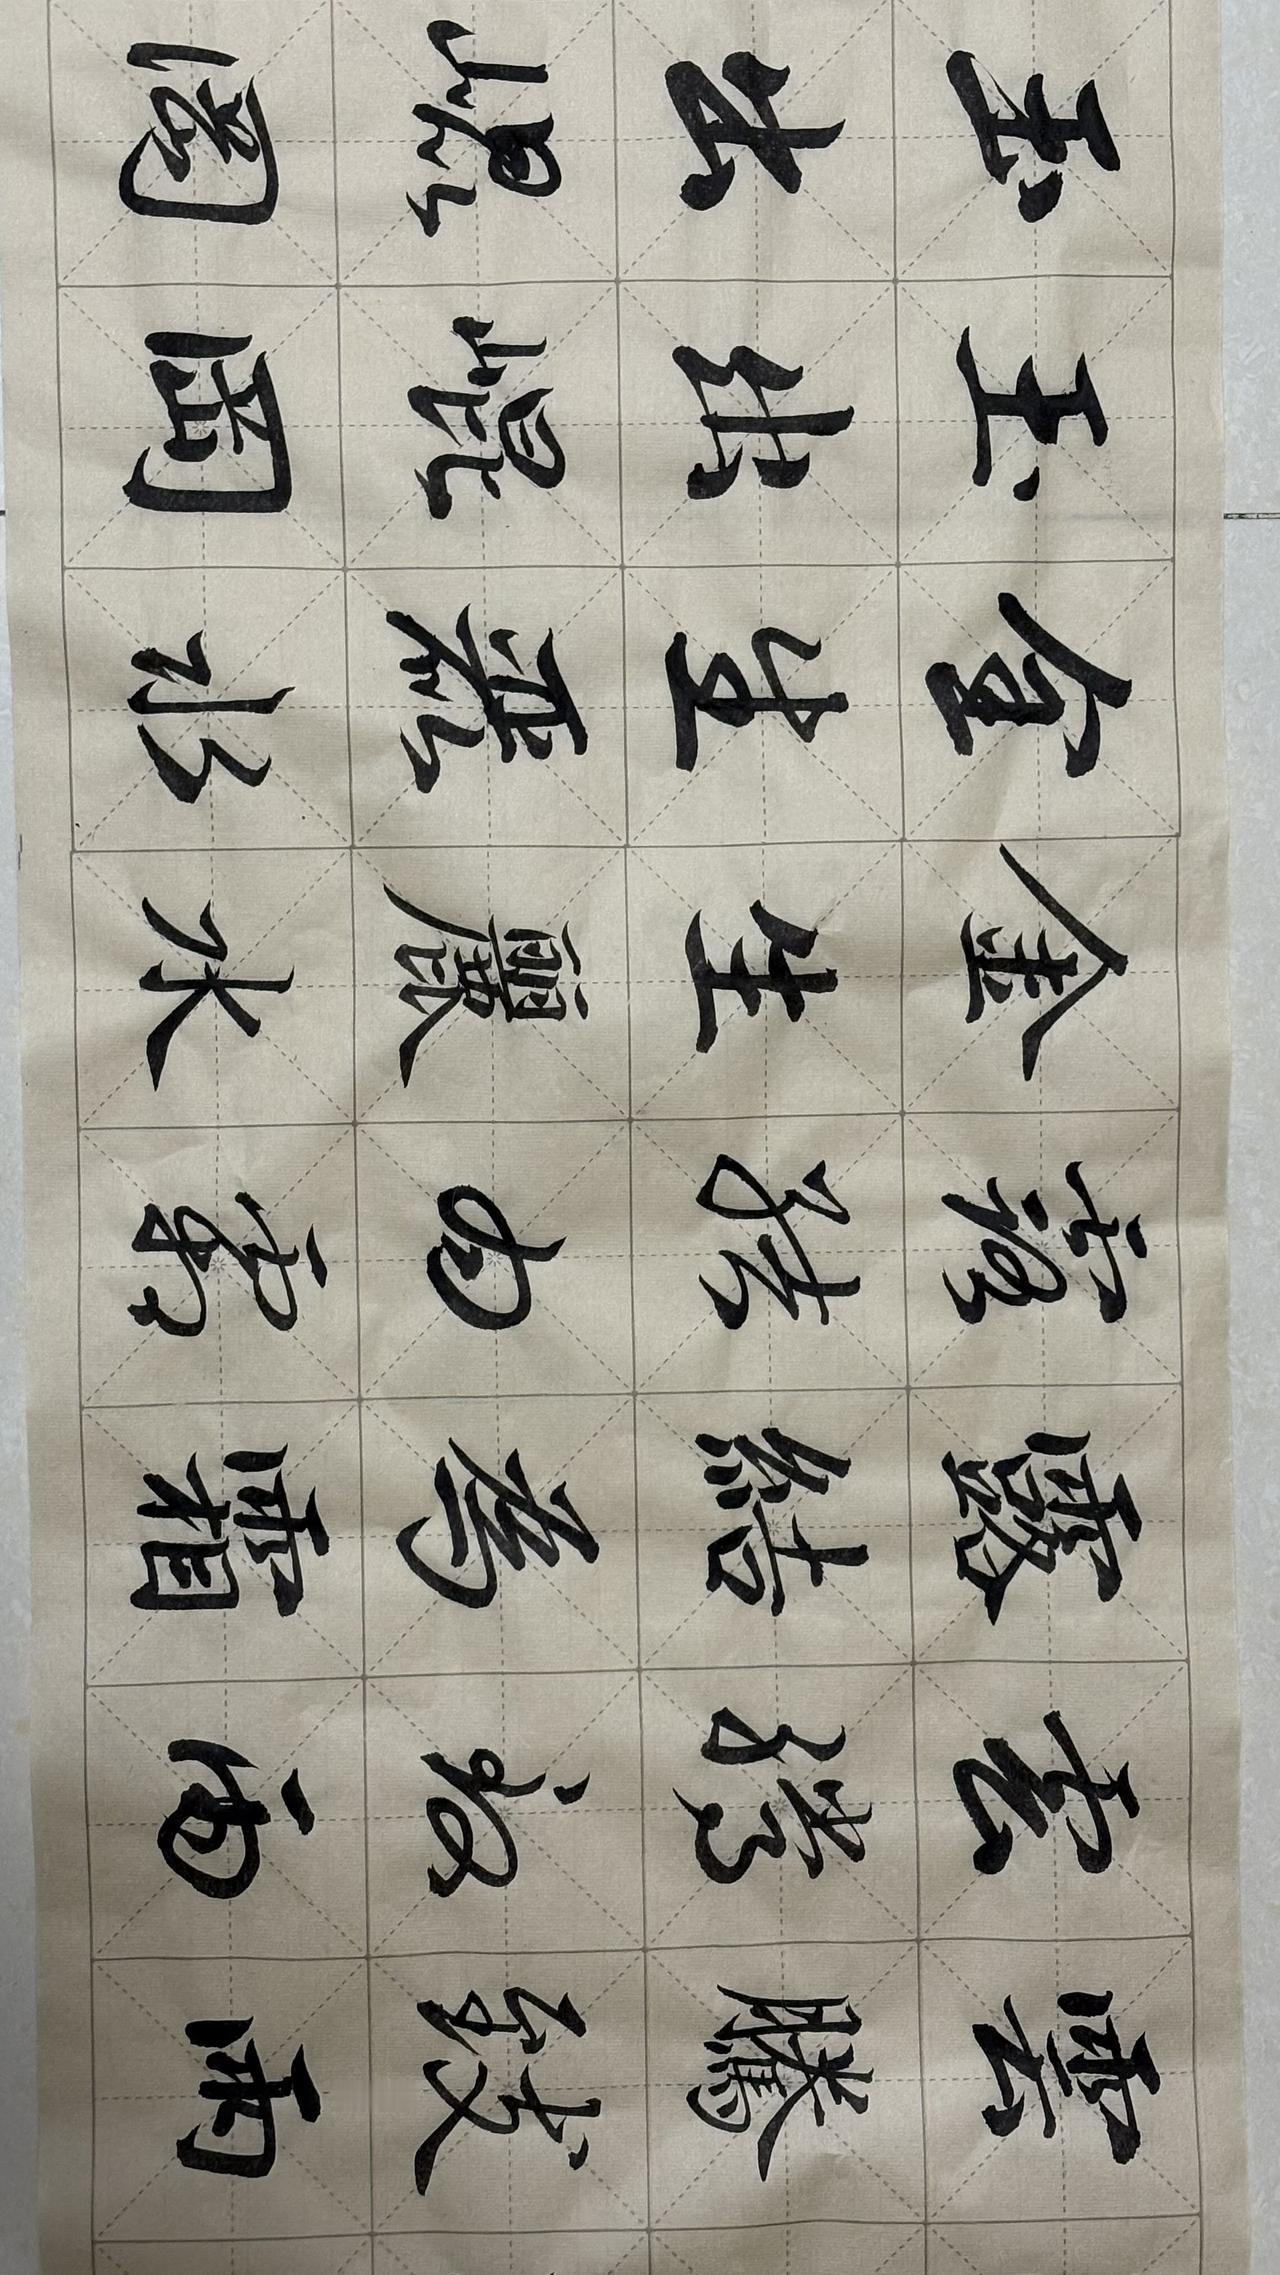 雲騰致雨
雲騰致雨
露結為霜
露結為霜
金生麗水
金生麗水
玉出崐岡
玉出崐岡